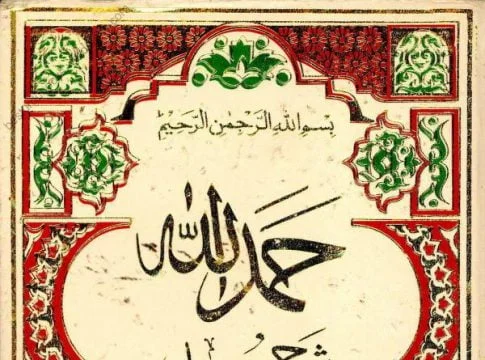 بسم الله الرحمن الرحيم
حمد الله